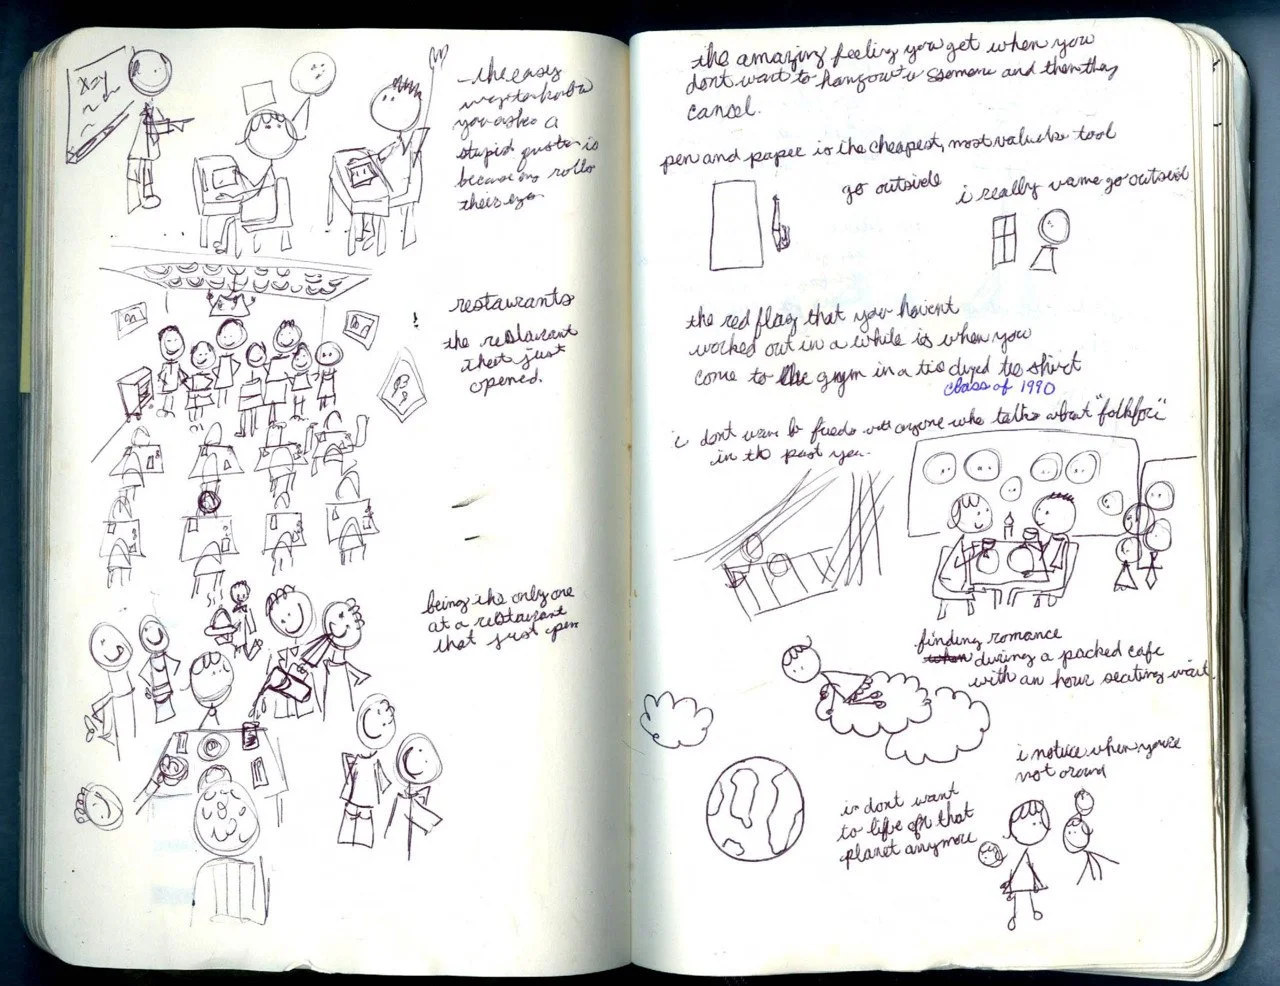 x=y
- the easy
way to know
you asked a
stupid question is
because rolls
their eyes
restaurants
the restaurant
that just
opened.
being the only one
at a restaurant
that just open
the amazing feeling you get when you
dont want to hangout w someone and then they
cancel.
pen and paper is the cheapest, most valuable tool
go outside
i really go outside
the red flag that you havent
worked out in a while is when you
come to the gym in a tie dyed tee shirt
class of 1990
i dont anyone who talks about "
in the past year.
finding romance
during a packed cafe
with an hour seating wait.
i notice when youre
not around
i dont want
to life on that
planet anymore